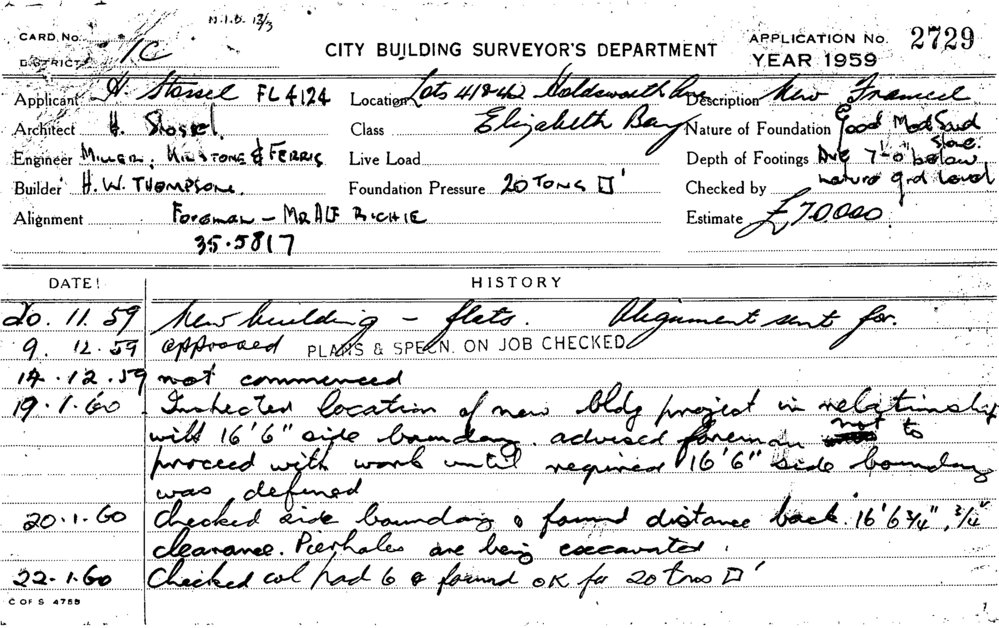 M.I.B. 13/3
CARD. No. 1C
DISTRICT
CITY BUILDING SURVEYOR'S DEPARTMENT
APPLICATION No. 2729
YEAR 1959
Applicant H. Stossel FL 4124 Location Lots 41 & 42 Holdsworth Ave Description New Framed
Architect H. Stossel. Class Elizabeth Bay Nature of Foundation Good Mod Sand Stone.
Engineer Miller, Milstone & Ferris Live Load Depth of Footings Ave 7'-0" below
Builder H. W. Thompson. Foundation Pressure 20 Tons □' Checked by nature grd level
Alignment Foreman - Mr Alf Richie Estimate £70000
35.5817
DATE! HISTORY
20. 11. 59 New building - flats. Alignment sent for.
9. 12. 59 approved PLANS & SPECN. ON JOB CHECKED
14.12.59 not commenced
19.1.60 Inspected location of new bldg project in relationship
with 16'6" side boundary. advised foreman not to
proceed with work until required 16'6" side boundary
was defined
20.1.60 Checked side boundary & found distance back 16'6¾", ¾"
clearance. Pierholes are being excavated.
22.1.60 Checked col pad 6 & found OK for 20 tons □'
C OF S 4755